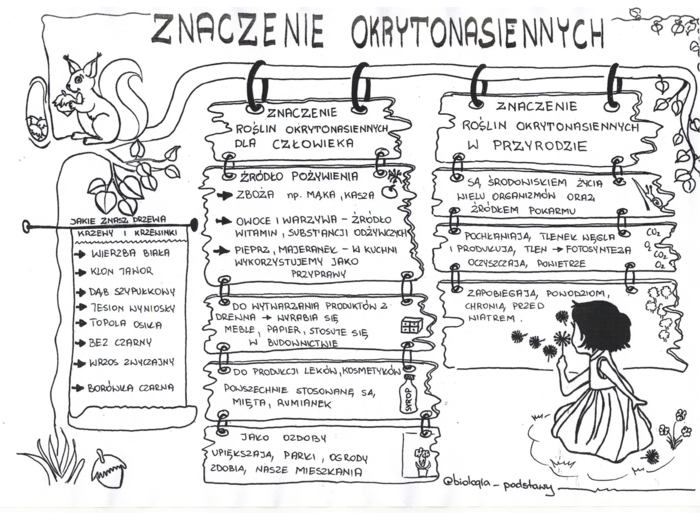 ZNACZENIE OKRYTONASIENNYCH
JAKIE ZNASZ DRZEWA
KRZEWY I KRZEWINKI
→ WIERZBA BIAŁA
→ KLON JAWOR
→ DĄB SZYPUŁKOWY
→ JESION WYNIOSŁY
→ TOPOLA OSIKA
→ BEZ CZARNY
→ WRZOS ZWYCZAJNY
→ BORÓWKA CZARNA
ZNACZENIE
ROŚLIN OKRYTONASIENNYCH
DLA CZŁOWIEKA
ŹRÓDŁO POŻYWIENIA
→ ZBOŻA np. MĄKA, KASZA
→ OWOCE I WARZYWA - ŹRÓDŁO
WITAMIN, SUBSTANCJI ODŻYWCZYCH
→ PIEPRZ, MAJERANEK - W KUCHNI
WYKORZYSTUJEMY JAKO
PRZYPRAWY
DO WYTWARZANIA PRODUKTÓW Z
DREWNA → WYRABIA SIĘ
MEBLE, PAPIER, STOSUJE SIĘ
W BUDOWNICTWIE
DO PRODUKCJI LEKÓW, KOSMETYKÓW
POWSZECHNIE STOSOWANE SĄ,
MIĘTA, RUMIANEK
SYROP
JAKO OZDOBY
UPIĘKSZAJĄ, PARKI, OGRODY
ZDOBIĄ, NASZE MIESZKANIA
ZNACZENIE
ROŚLIN OKRYTONASIENNYCH
W PRZYRODZIE
SĄ ŚRODOWISKIEM ŻYCIA
WIELU ORGANIZMÓW ORAZ,
ŹRÓDŁEM POKARMU
POCHŁANIAJĄ, TLENEK WĘGLA
I PRODUKUJĄ, TLEN → FOTOSYNTEZA
OCZYSZCZAJĄ, POWIETRZE
CO₂
O₂ CO₂
O₂ CO₂
ZAPOBIEGAJĄ, POWODZIOM,
CHRONIĄ PRZED
WIATREM.
@biologia_podstawy